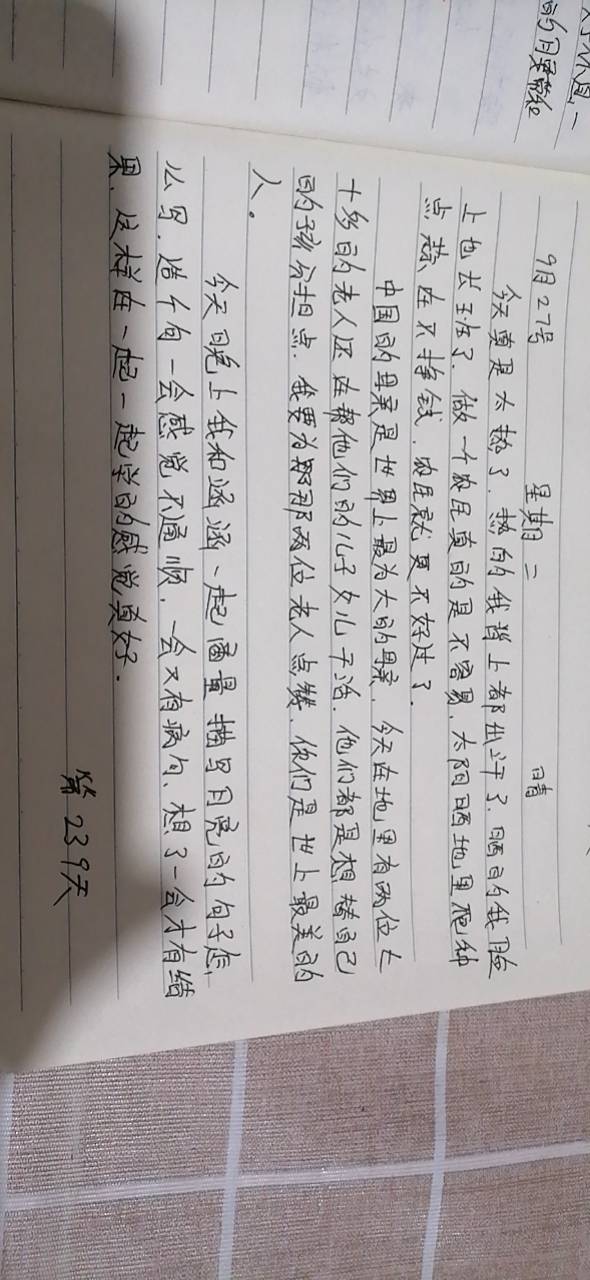 的月亮带和
9月27号 星期二 晴
今天真是太热了.热的我背上都出汗了.晒的我脸
上也长痘了.做一个农民真的是不容易.太阳晒地里爬种
点蒜.在不挣钱.农民就更不好过了.
中国的母亲是世界上最为大的母亲.今天在地里有两位七
十多的老人还在帮他们的儿子女儿干活.他们都是想替自己
的孩分担点.我要为那那两位老人点赞.他们是世上最美的
人。
今天晚上我和涵涵一起商量描写月亮的句子怎
么写.造个句一会感觉不通顺.一会又有病句、想了一会才有结
果.这样在一起一起学的感觉真好.
第239天